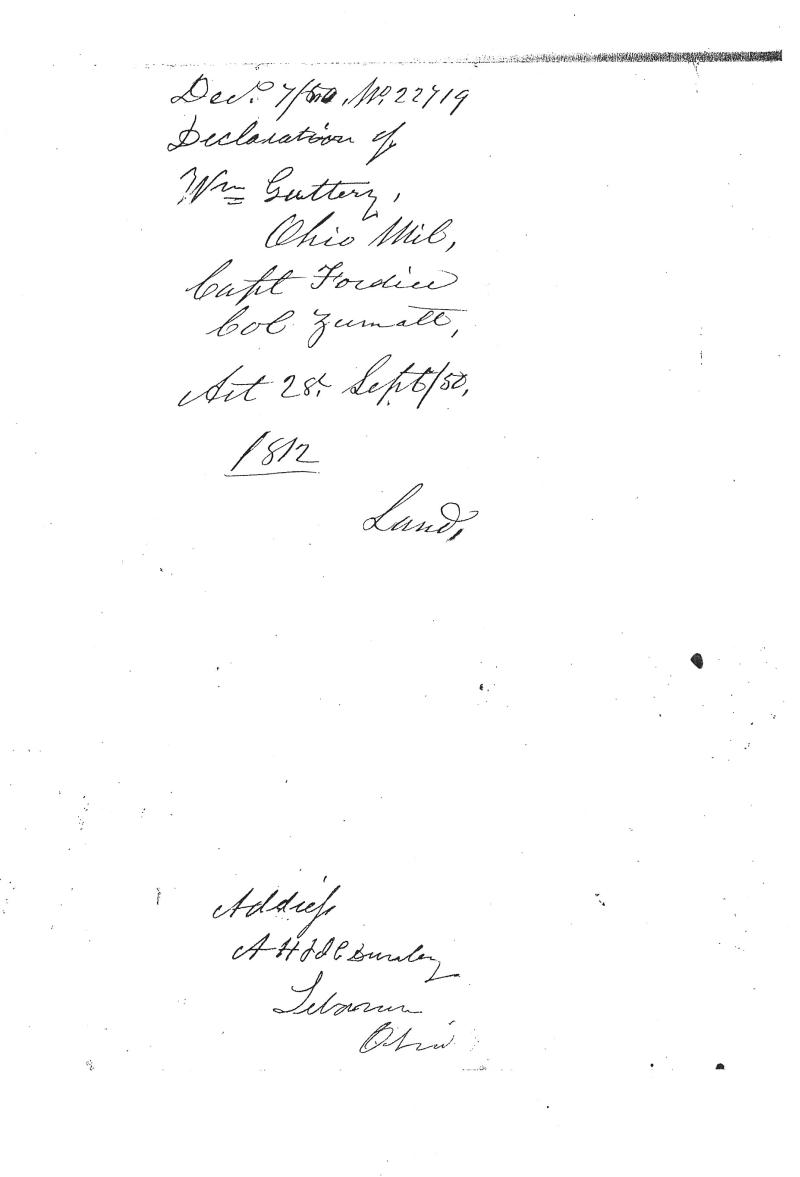 Dec. 7/50, No. 22719
Declaration of
Wm Guttery,
Ohio Mil,
Capt Fordice
Col Zumalt,
Act 28. Sept/50,
1812
Land,
Address
A H & J C Dunlevy
Lebanon
Ohio